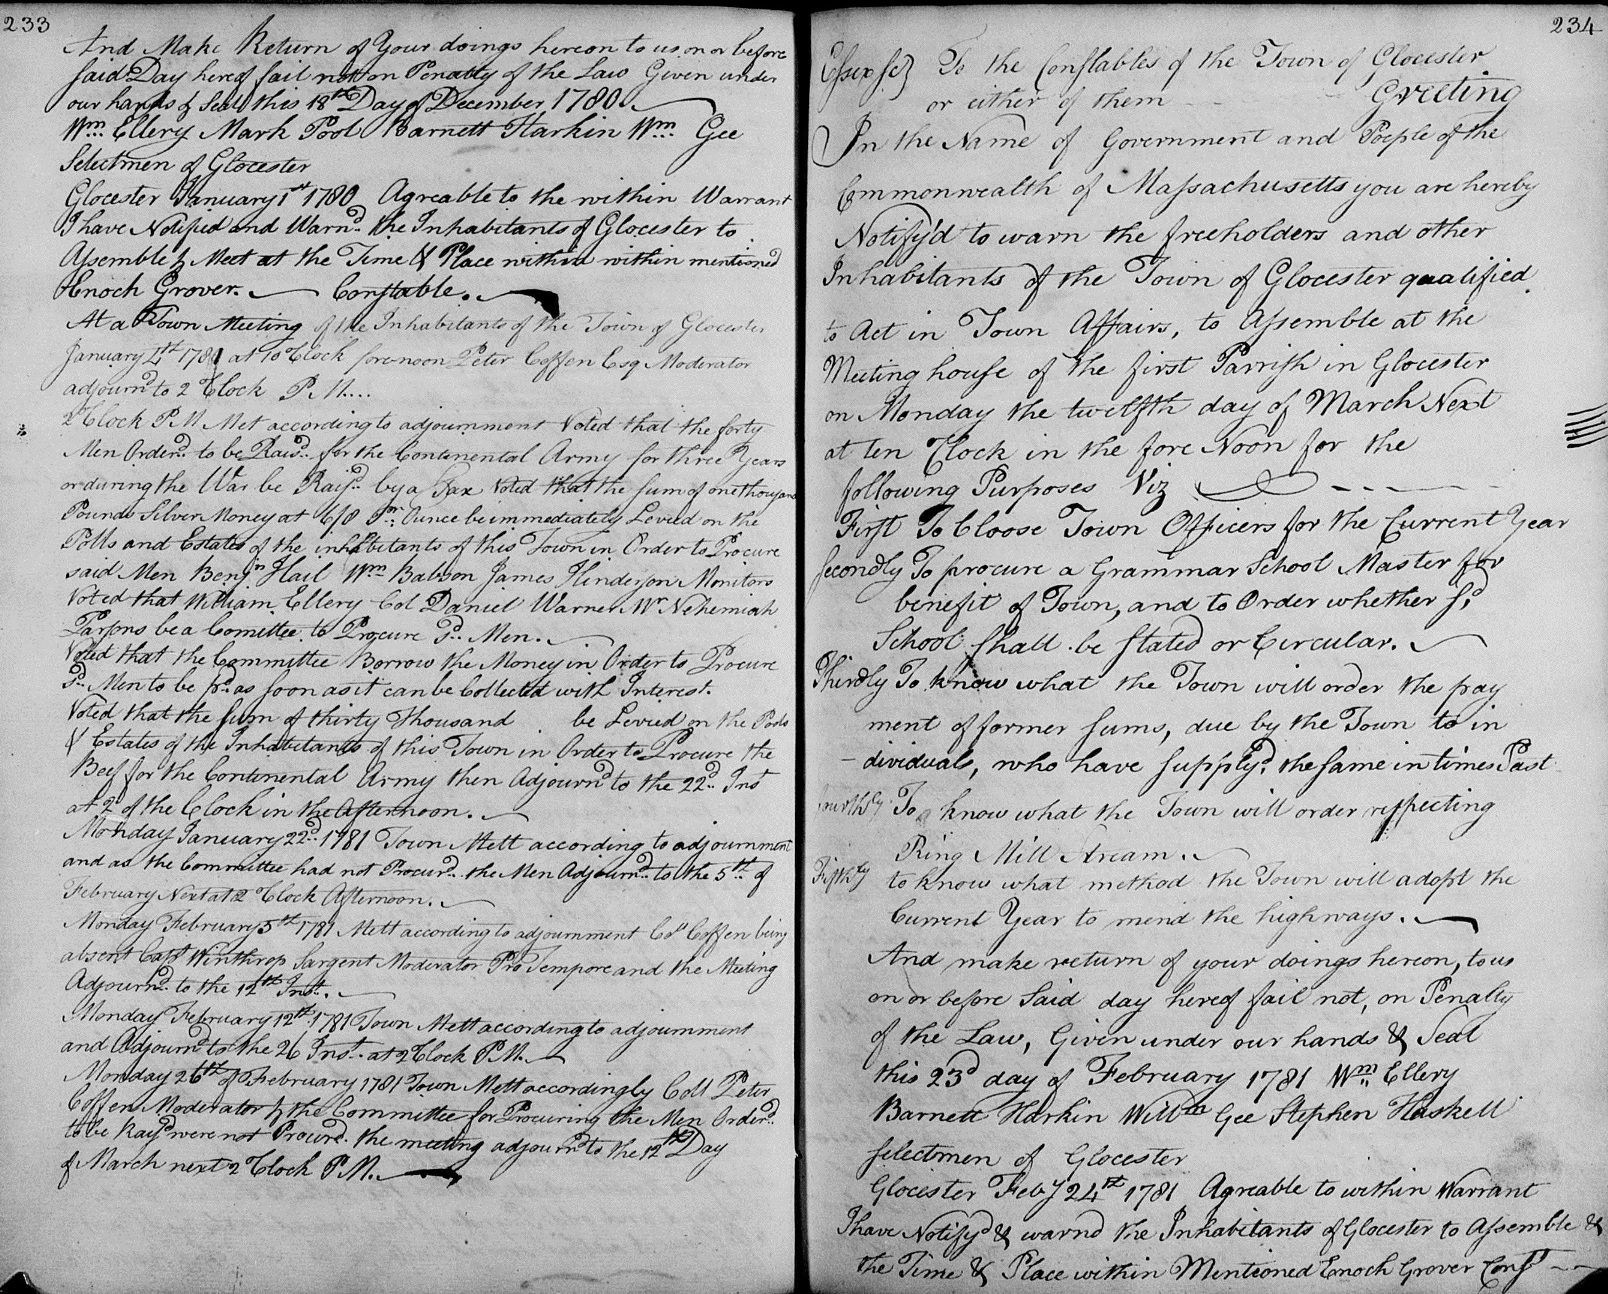 233
And Make Return of Your doings hereon to us on or before
said Day hereof fail not on Penalty of the Law Given under
our hands & Seal this 18th Day of December 1780
Wm. Ellery Mark Pool Barnett Harkin Wm. Gee
Selectmen of Glocester
Glocester January 1st 1780 Agreable to the within Warrant
I have Notified and Warnd. the Inhabitants of Glocester to
Assemble & Meet at the Time & Place within within mentioned
Enoch Grover. Constable.
At a Town Meeting of the Inhabitants of the Town of Glocester
January 1st 1781 at 10 Clock forenoon Peter Coffen Esq Moderator
adjournd to 2 Clock P.M....
2 Clock P.M. Met according to adjournment Voted that the forty
Men Orderd. to be Raisd. for the Continental Army for three Years
or during the War be Raisd. by a Tax Voted that the sum of one thousand
Pounds Silver Money at 6/8 Pr. Ounce be immediately Levied on the
Polls and Estates of the inhabitants of this Town in Order to Procure
said Men Benjn Hail Wm Babson James Hinderson Monitors
Voted that William Ellery Col Daniel Warner Mr Nehemiah
Parsons be a Comittee. to Procure Sd. Men.
Voted that the Committee Borrow the Money in Order to Procure
Sd. Men to be pd. as soon as it can be Collected with Interest.
Voted that the sum of thirty Thousand be Levied on the Pools
& Estates of the Inhabitants of this Town in Order to Procure the
Beef for the Continental Army then Adjournd to the 22d. Inst
at 2 of the Clock in the Afternoon.
Monday January 22d. 1781 Town Mett according to adjournment
and as the Committee had not Procurd. the Men Adjournd. to the 5th. of
February Next at 2 Clock Afternoon.
Monday February 5th 1781 Mett according to adjournment Coll Coffen being
absent Capt Winthrop Sargent Moderator Pro Tempore and the Meeting
Adjournd. to the 12th Inst.
Monday February 12th. 1781 Town Mett according to adjournment
and Adjournd to the 26 Inst. at 2 Clock P.M.
Monday 26th of February 1781 Town Mett accordingly Coll Peter
Coffen Moderator & the Committee for Procuring the Men Orderd.
to be Raysd were not Procurd. the meeting adjournd to the 12th Day
of March next 2 Clock P.M.
234
Essex Sc} To the Constables of the Town of Glocester
or either of them Greeting
In the Name of Government and Poeple of the
Commonwealth of Massachusetts you are hereby
Notify'd to warn the freeholders and other
Inhabitants of the Town of Glocester qualified
to Act in Town Affairs, to Assemble at the
Meeting house of the first Parrish in Glocester
on Monday the twelfth day of March Next
at ten Clock in the fore Noon for the
following Purposes Viz
First To Cloose Town Officers for the Current Year
Secondly To procure a Grammar School Master for
benifit of Town, and to Order whether Sd
School shall be Stated or Circular.
Thirdly To know what the Town will order the pay
ment of former sums, due by the Town to in
- dividuals, who have supplyd. the same in times Past
fourthly To know what the Town will order respecting
Ring Mill Stream.
Fifthly to know what method the Town will adopt the
Current Year to mend the highways.
And make return of your doings hereon, to us
on or before Said day hereof fail not, on Penalty
of the Law, Given under our hands & Seal
this 23d day of February 1781 Wm. Ellery
Barnett Harkin Willm Gee Stephen Haskell
selectmen of Glocester
Glocester Feby 24st 1781 Agreable to within Warrant
I have Notifyd & warnd the Inhabitants of Glocester to Assemble &
the Time & Place within Mentioned Enoch Grover Const